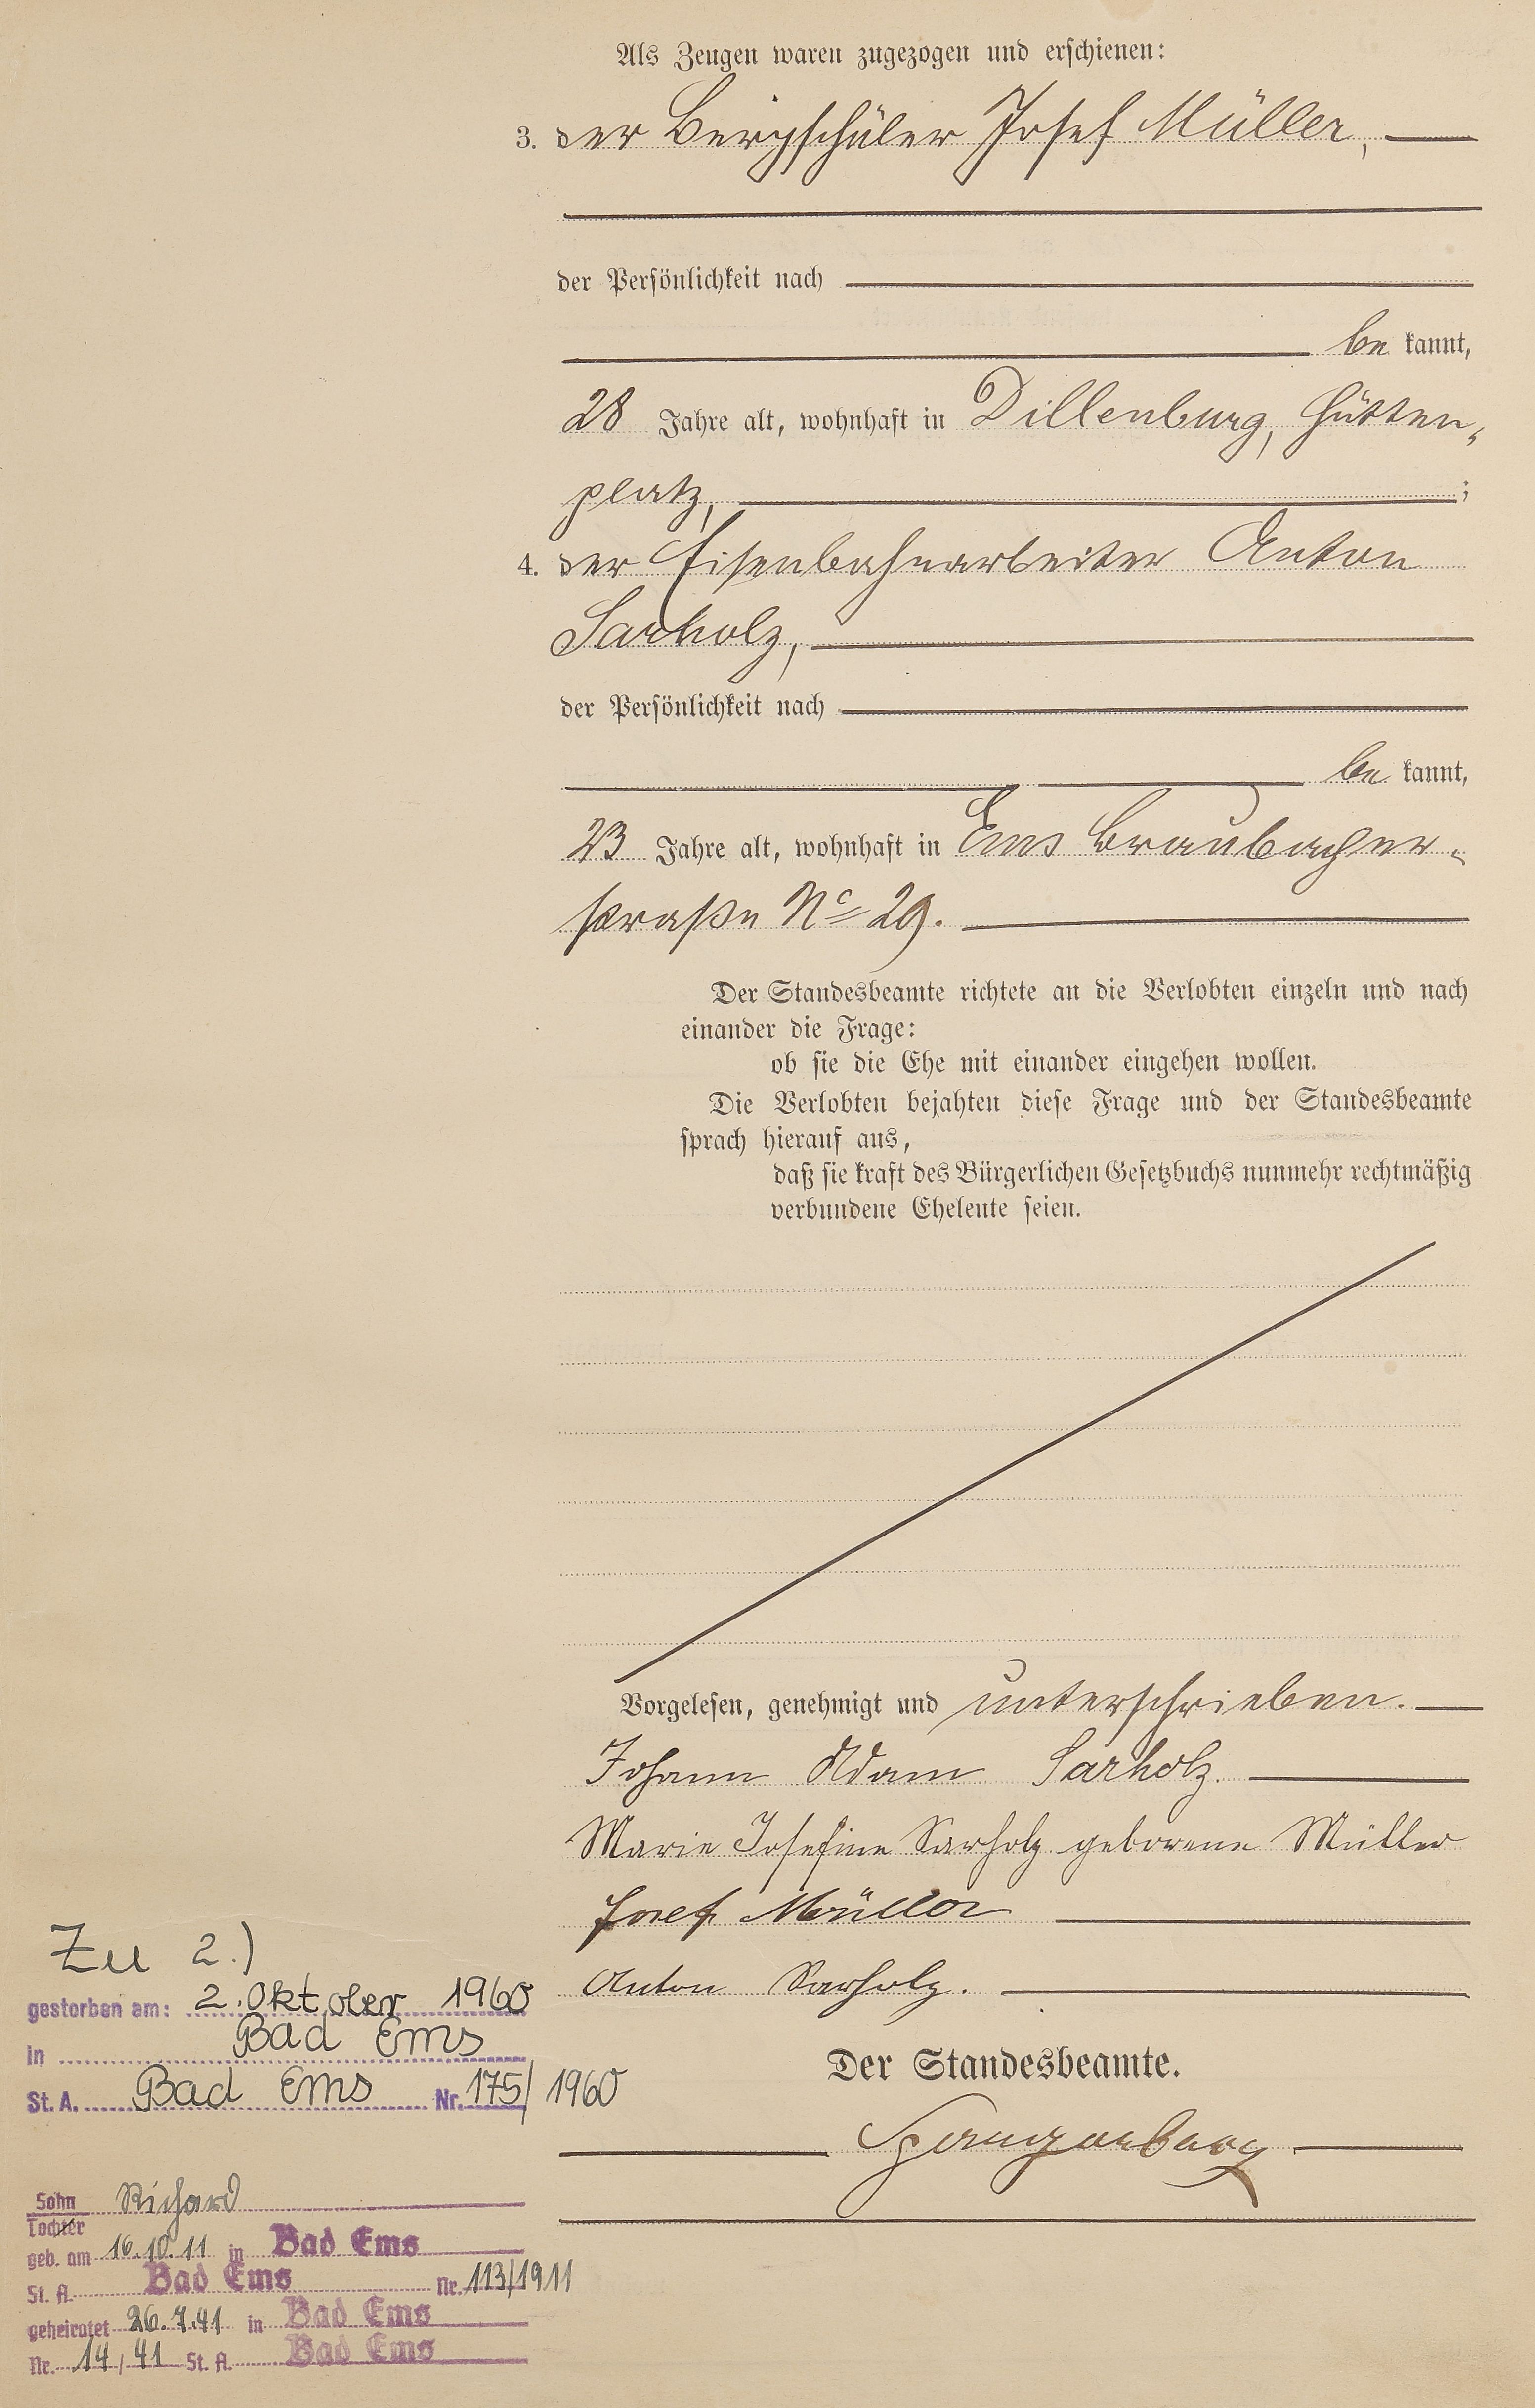 Als Zeugen waren zugezogen und erschienen:
3. der Bergschüler Josef Müller,
der Persönlichkeit nach
be kannt,
28 Jahre alt, wohnhaft in Dillenburg, Hütten-
platz, ;
4. der Eisenbahnarbeiter Anton
Sarholz,
der Persönlichkeit nach
be kannt,
23 Jahre alt, wohnhaft in Ems Braubacher-
straße No 29.
Der Standesbeamte richtete an die Verlobten einzeln und nach
einander die Frage:
ob sie die Ehe mit einander eingehen wollen.
Die Verlobten bejahten diese Frage und der Standesbeamte
sprach hierauf aus,
daß sie kraft des Bürgerlichen Gesetzbuchs nunmehr rechtmäßig
verbundene Eheleute seien.
Vorgelesen, genehmigt und unterschrieben.
Johann Adam Sarholz.
Marie Josefine Sarholz geborene Müller
Josef Müller
Anton Sarholz.
Der Standesbeamte.
Spangenberg
Zu 2.)
gestorben am: 2. Oktober 1960
in Bad Ems
St. A. Bad Ems Nr. 175/1960
Sohn Richard
Tochter
geb. am 16.10.11 in Bad Ems
St. A. Bad Ems Nr. 113/1911
geheiratet 26.7.41 in Bad Ems
Nr. 14/41 St. A. Bad Ems